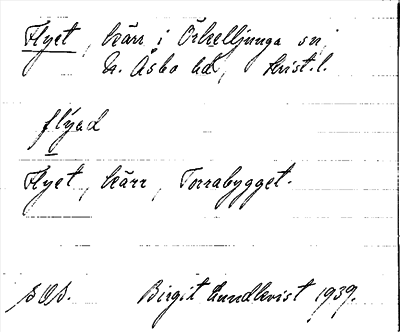 Flyet, kärr i Örkelljunga sn,
N. Åsbo hd, Krist. l.
flýəd
Flyet, kärr, Torrabygget.
SOD. Birgit Lundkvist 1939.